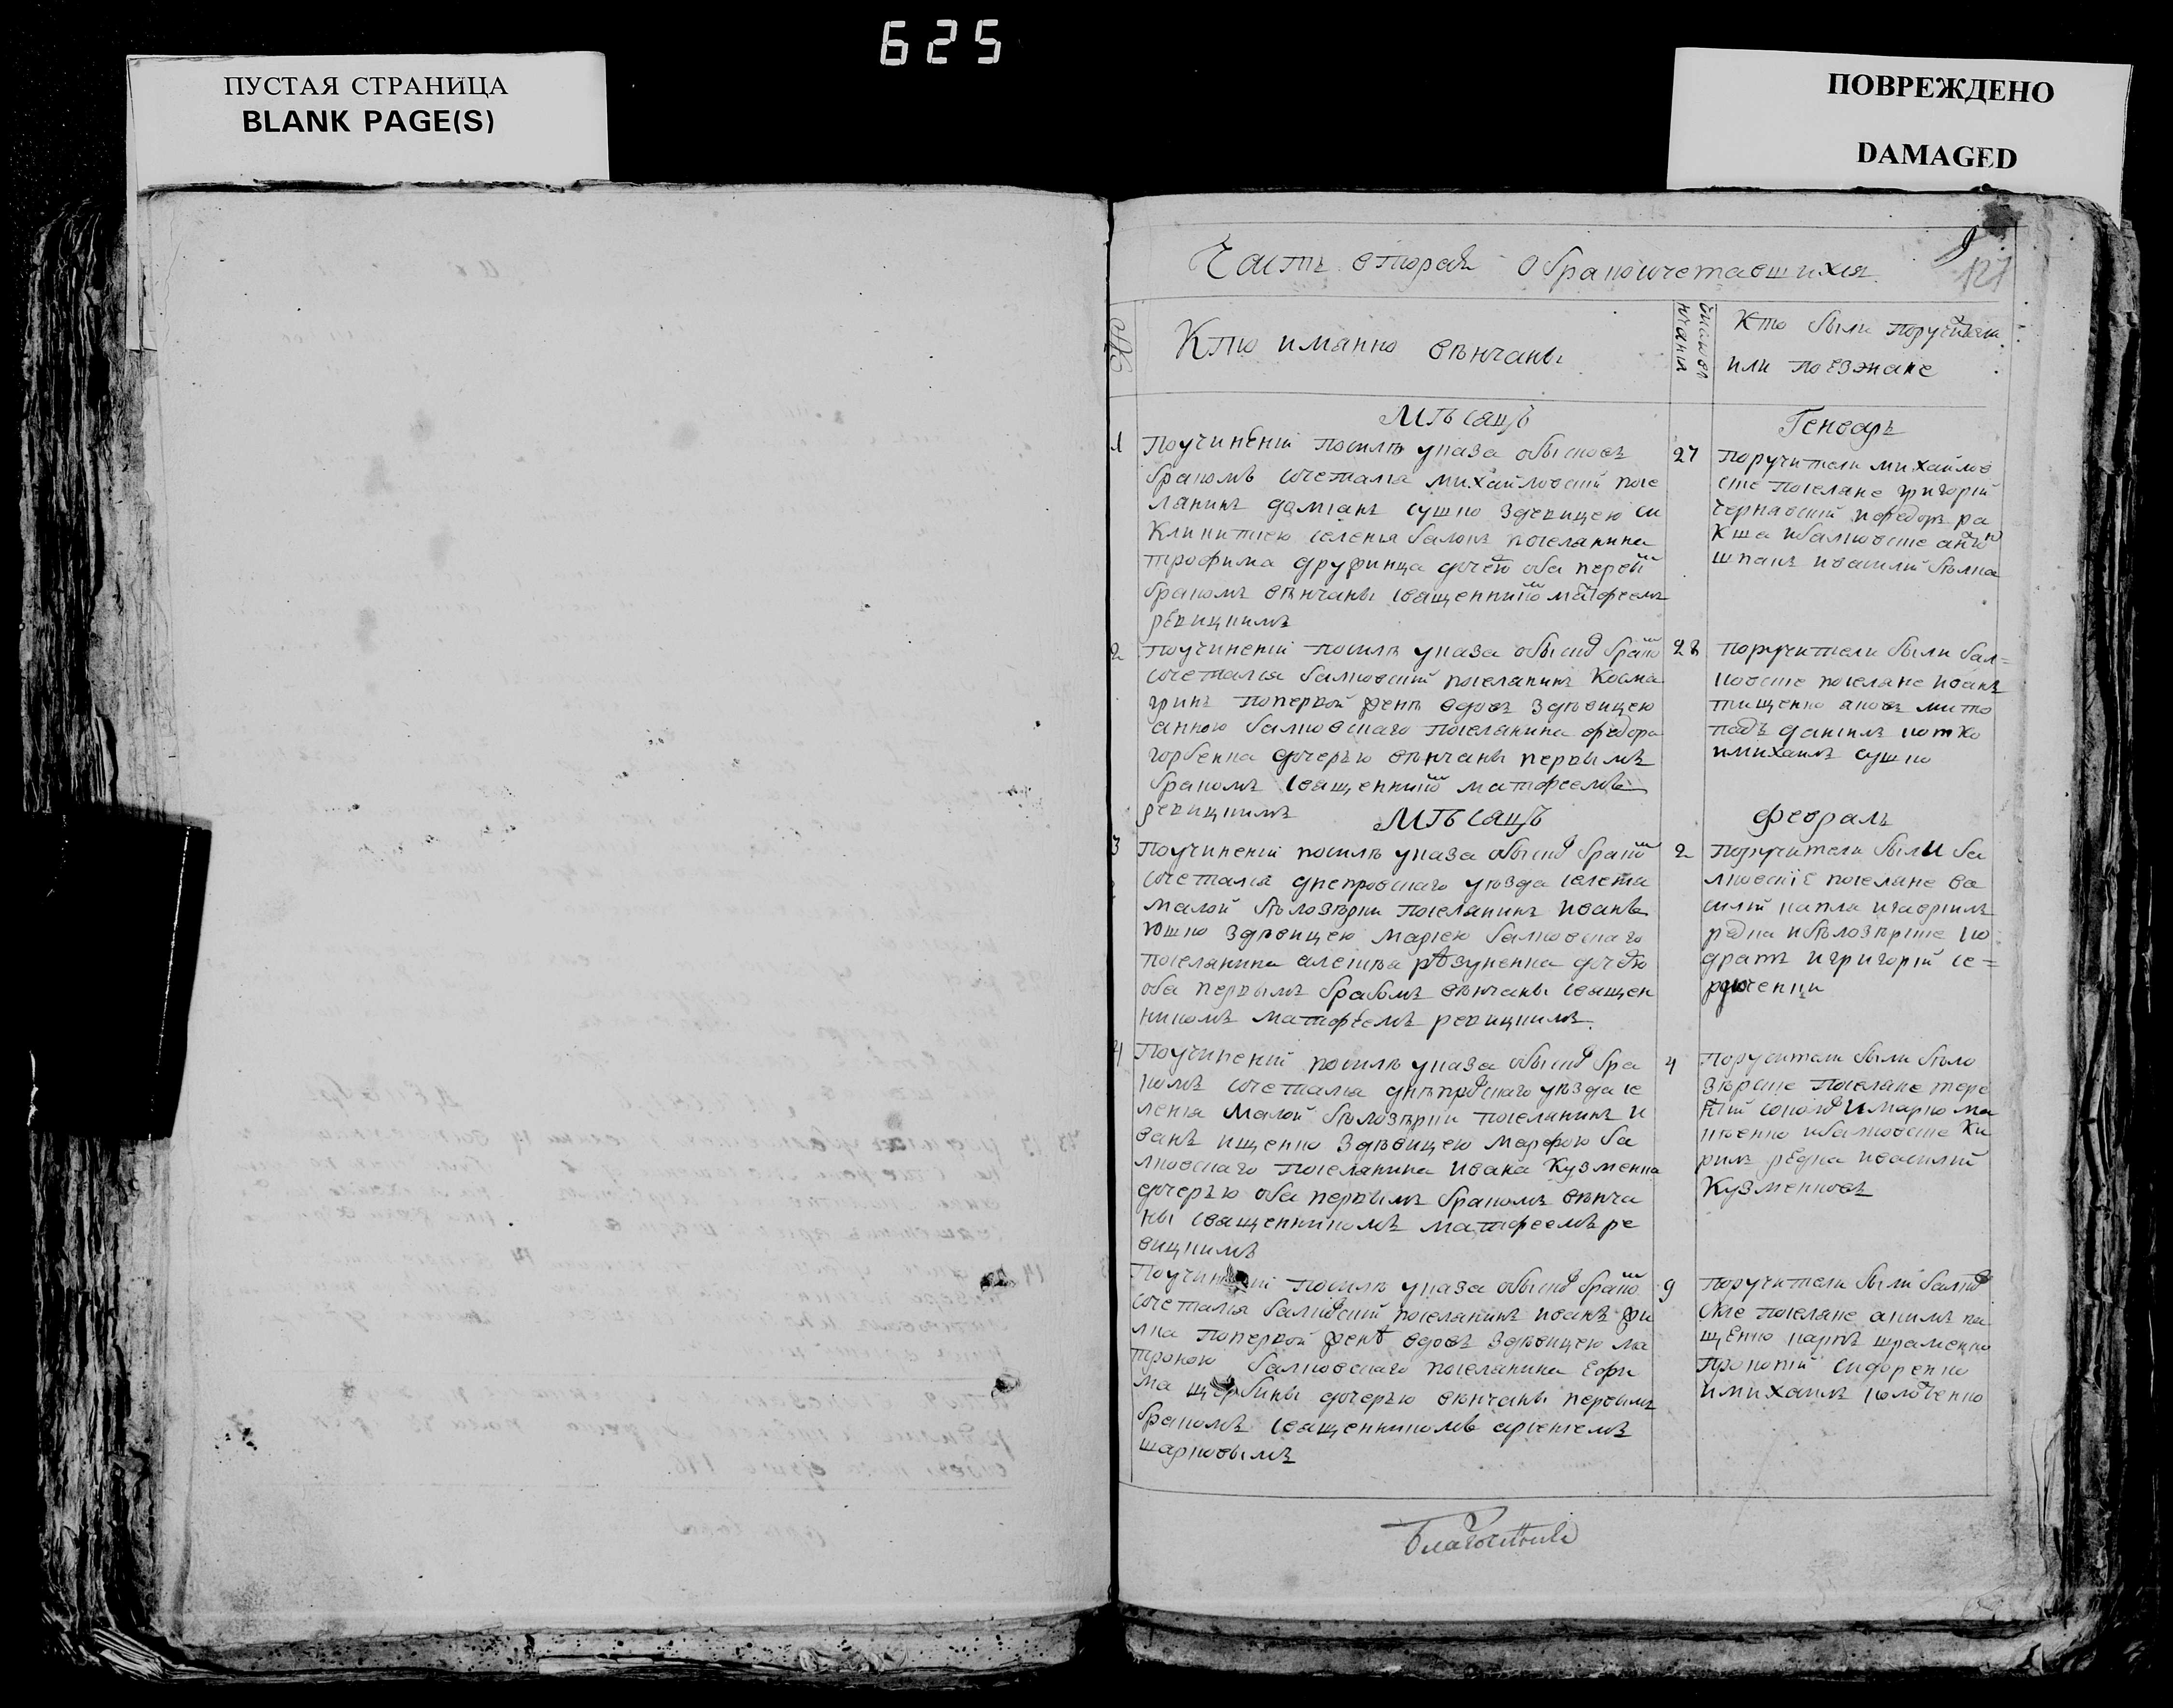 625
ПУСТАЯ СТРАНИЦА
BLANK PAGE(S)
ПОВРЕЖДЕНО
DAMAGED
Часть вторая о бракосочетавшихся
121
Кто иманно вѣнчаны
Кто были поручители
или поезжане
Мѣсацъ
Генварь
1
Поучинѣніи посилѣ указа обысковъ
бракомъ сочетался михайловскій посе
ланинъ даміанъ сушко здевицею си
клинитиею селенья балокъ поселанина
трофима друфинца дочею оба первїй
бракомъ вѣнчаны священникомъ матфеемъ
ревицкимъ
27
поручители михайлов
скіе поселане григорій
чернявскій ифедоръ ра
кша ибалковскіе антон
шпакъ ивасилій бѣлка
2
поучиненіи посилѣ указа обыскв бракомъ
сочетался балковскій поселанинъ Косма
гринь поперкой женѣ вдовъ здѣвицею
анною балковскаго поселанина федора
горбенка дочерью вѣнчаны первымъ
бракомъ священникомъ матфеемъ
ревицкимъ
28
поручители были бал=
ковскіе поселане иванъ
тищенко яковъ мито
падъ данилъ котко
имихаилъ сушко
Мѣсацъ
Февраль
3
Поучиненіи посилѣ указа обыскв бракомъ
сочетался днепровскаго уѣзда
малой бѣлозѣрки поселанинъ иванъ
юшко здѣвицею маріею балковскаго
поселанина алексѣя рѣзуненка дочерю
оба первымъ бракомъ вѣнчаны священ
никомъ матфеемъ ревицкимъ
2
поручители были ба
лковскіе поселане ва
силій капля игаврилъ
редка ибѣлозѣрскіе ко
дратъ игригорій се=
рдюченки
4
Поучиненіи посилѣ указа обыскв бра
комъ сочетался днѣпровскаго уѣзда се
ленія малой бѣлозѣрки поселанинъ и
ванъ ищенко здѣвицею марфою ба
лковскаго поселанина ивана Кузменка
дочерью оба первымъ бракомъ вѣнча
ны священникомъ матфеемъ ре
вицкимъ
4
поручители были бѣло
зѣрскіе поселане тере
нтій соколов имарко ма
ибалковскіе Ки
рилъ редка ивасилій
Кузменковъ
посилѣ указа обыскв бракомъ
сочетался балковскій поселанинъ иванъ фи
лка поперкой женѣ вдовъ здѣвицею ма
троною балковскаго поселанина Ефи
ма щербины дочерью вѣнчаны первымъ
бракомъ священникомъ арсеніемъ
шарковымъ
9
поручители были балков
скіе поселане акимъ па
щенко карпъ шраменко
прокопій сидоренко
имихаилъ